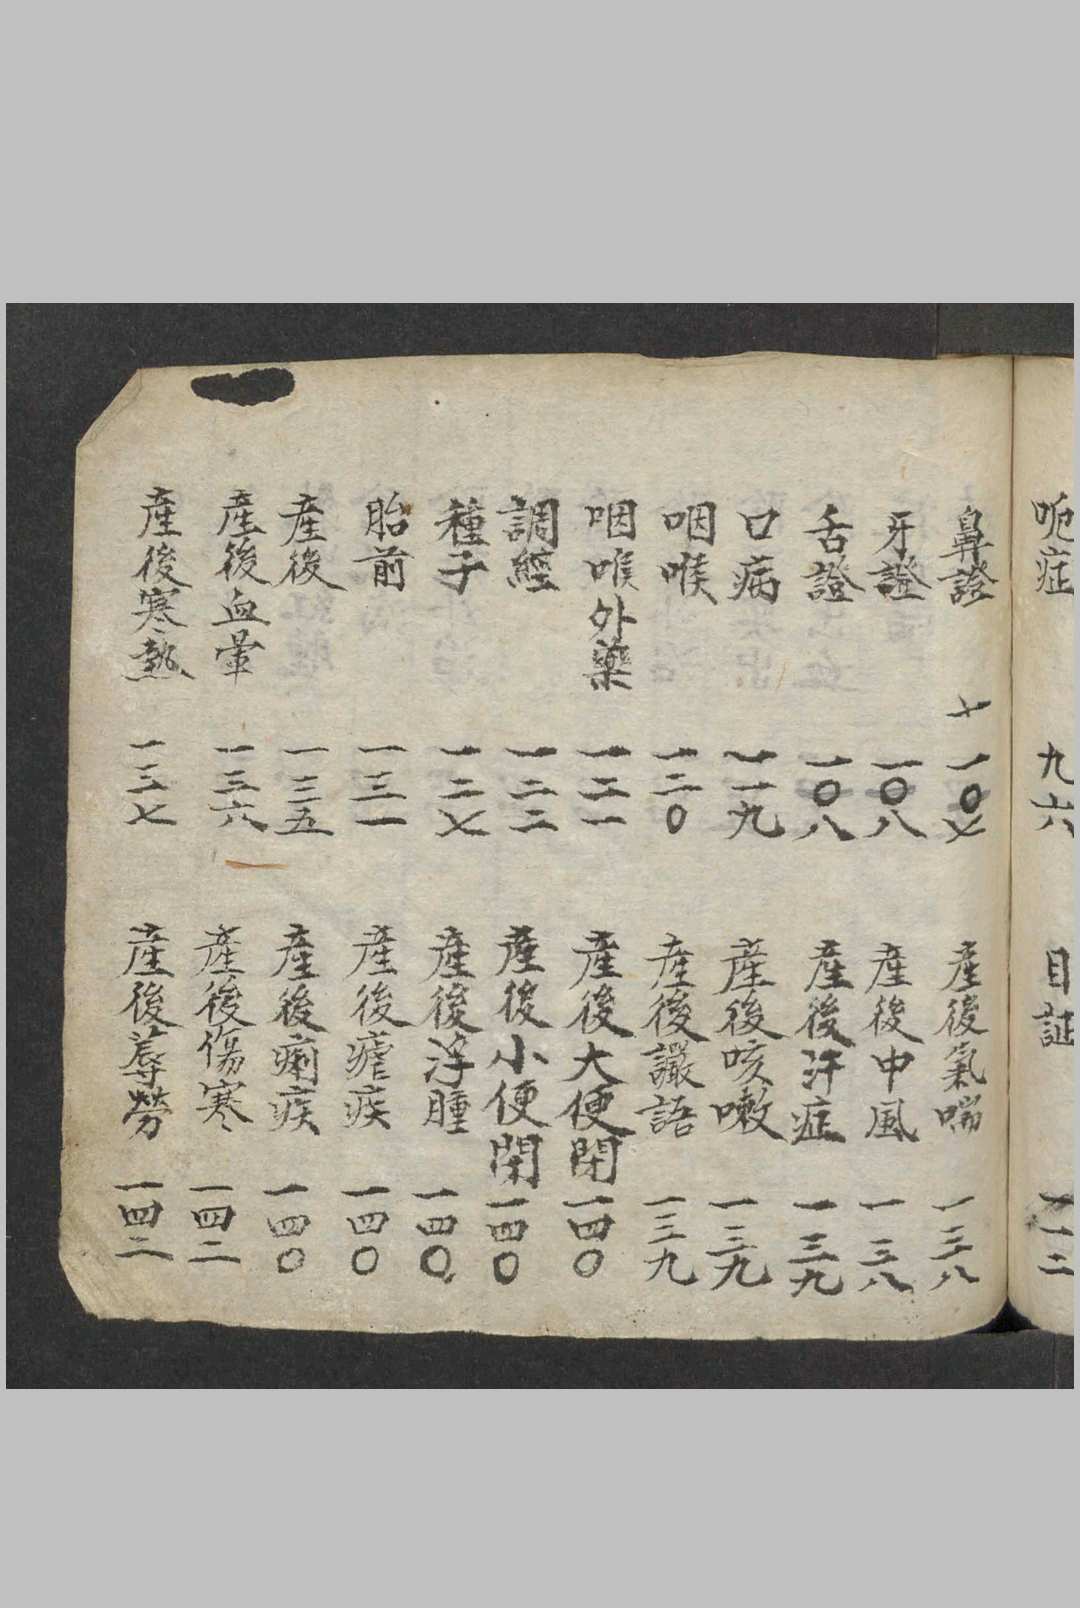 呃症 九六
目証 一一二
鼻證 一〇七
牙證 一〇八
舌證 一〇八
口病 一一九
咽喉 一二〇
咽喉外藥 一二一
調經 一二二
種子 一二七
胎前 一三一
產後 一三五
產後血暈 一三六
產後寒熱 一三七
產後氣喘 一三八
產後中風 一三八
產後汗症 一三九
產後咳嗽 一三九
產後讝語 一三九
產後大便閉 一四〇
產後小便閉 一四〇
產後浮腫 一四〇
產後瘧疾 一四〇
產後痢疾 一四〇
產後傷寒 一四二
產後蓐勞 一四二